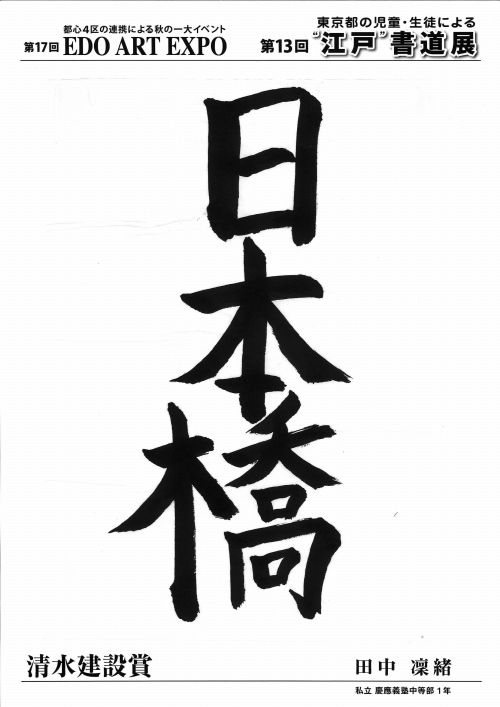 都心4区の連携による秋の一大イベント
第17回 EDO ART EXPO
東京都の児童・生徒による
第13回 “江戸”書道展
日本橋
清水建設賞
田中 凜緒
私立 慶應義塾中等部 1年